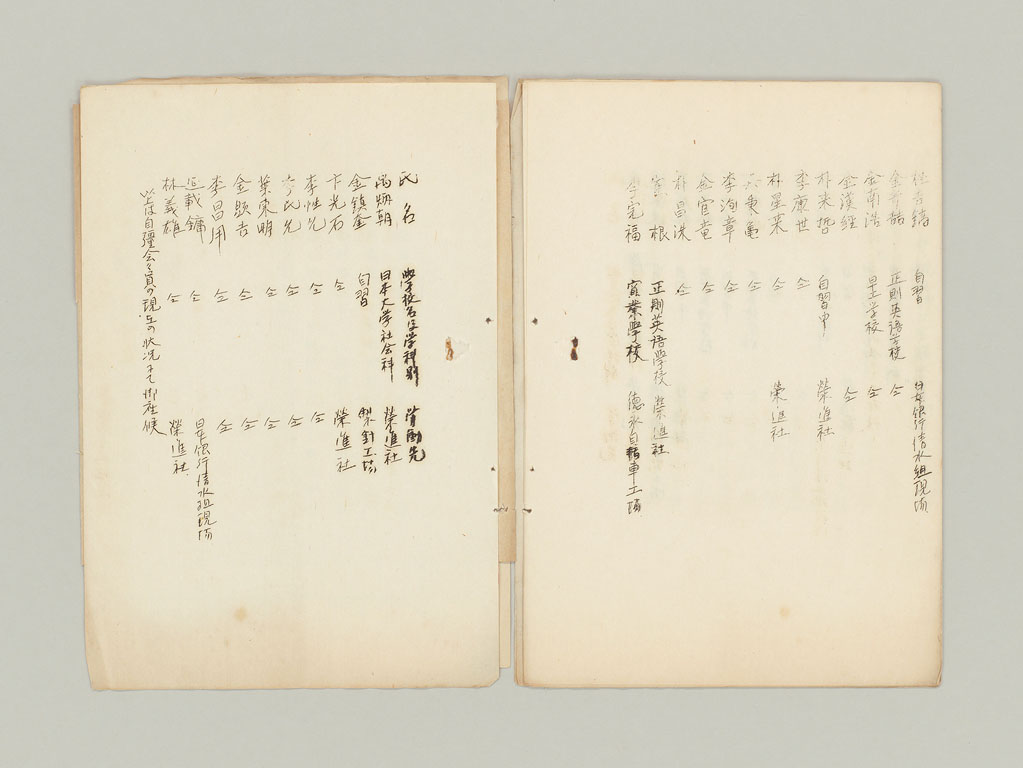 自習 日本銀行清水組現場
金 正則英語学校 仝
金南浩 早工学校 仝
金漢經 仝
朴来哲 自習中 榮進社
李康世 仝
朴星来 仝 榮進社
秉亀 仝
李海章 仝
金官竜 仝
朴昌洙 仝
根 正則英語学校 榮進社
李完福 實業學校 德永自轉車工場
氏名 學校名及学科別 労働先
炳朝 日本大学社会科 榮進社
金鎮奎 自習 製針工場
卞光石 仝 榮進社
李性允 仝 仝
氏允 仝 仝
葉東明 仝 仝
金顕吉 仝 仝
李昌用 仝 仝
載鏞 仝 日本銀行清水組現場
林義雄 仝 榮進社
以上は自彊会々員の現在の状况にて御座候